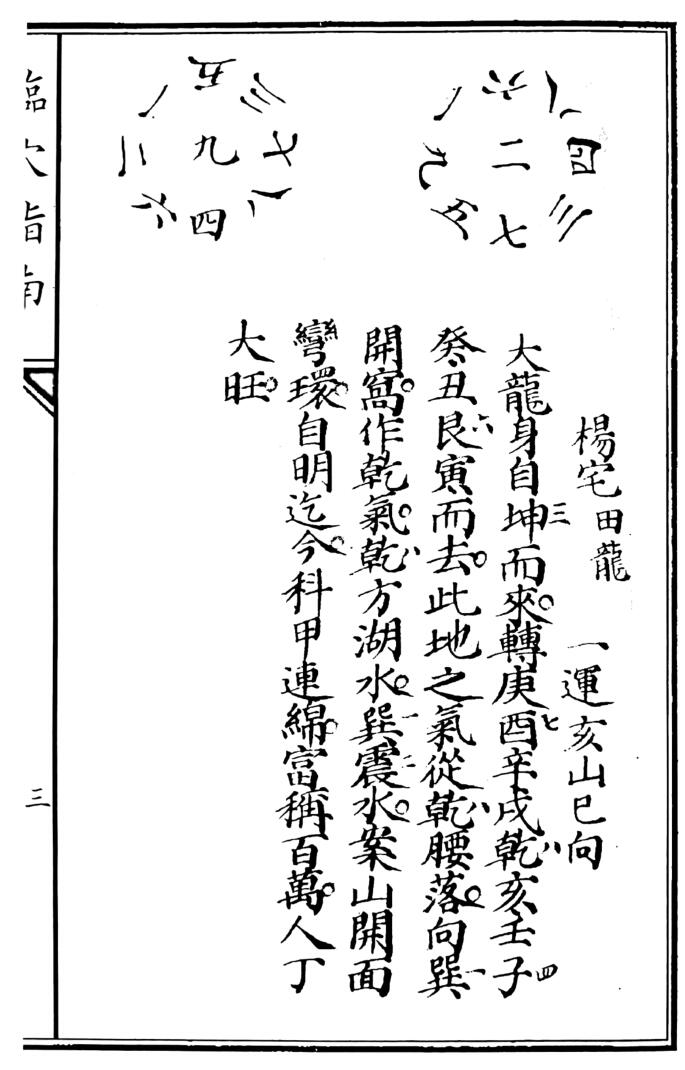 一 六 八
九 二 四
五 七 三
一 五 三
二 九 七
六 四 八
楊宅田龍 一運亥山巳向
大龍身自坤三而來。轉庚酉七辛戌乾八亥壬子四
癸丑艮六寅而去。此地之氣從乾八腰落。向巽一
開窩。作乾氣。乾八方湖水。巽一震二水。案山開面
彎環。自明迄今。科甲連綿。富稱百萬。人丁
大旺。
臨穴指南
三